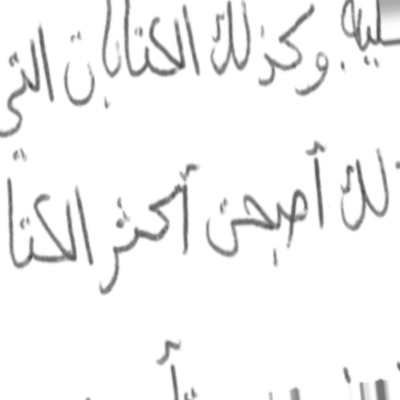 وكذلك الكتابات التي
لك أصبحت أكثر الكتا